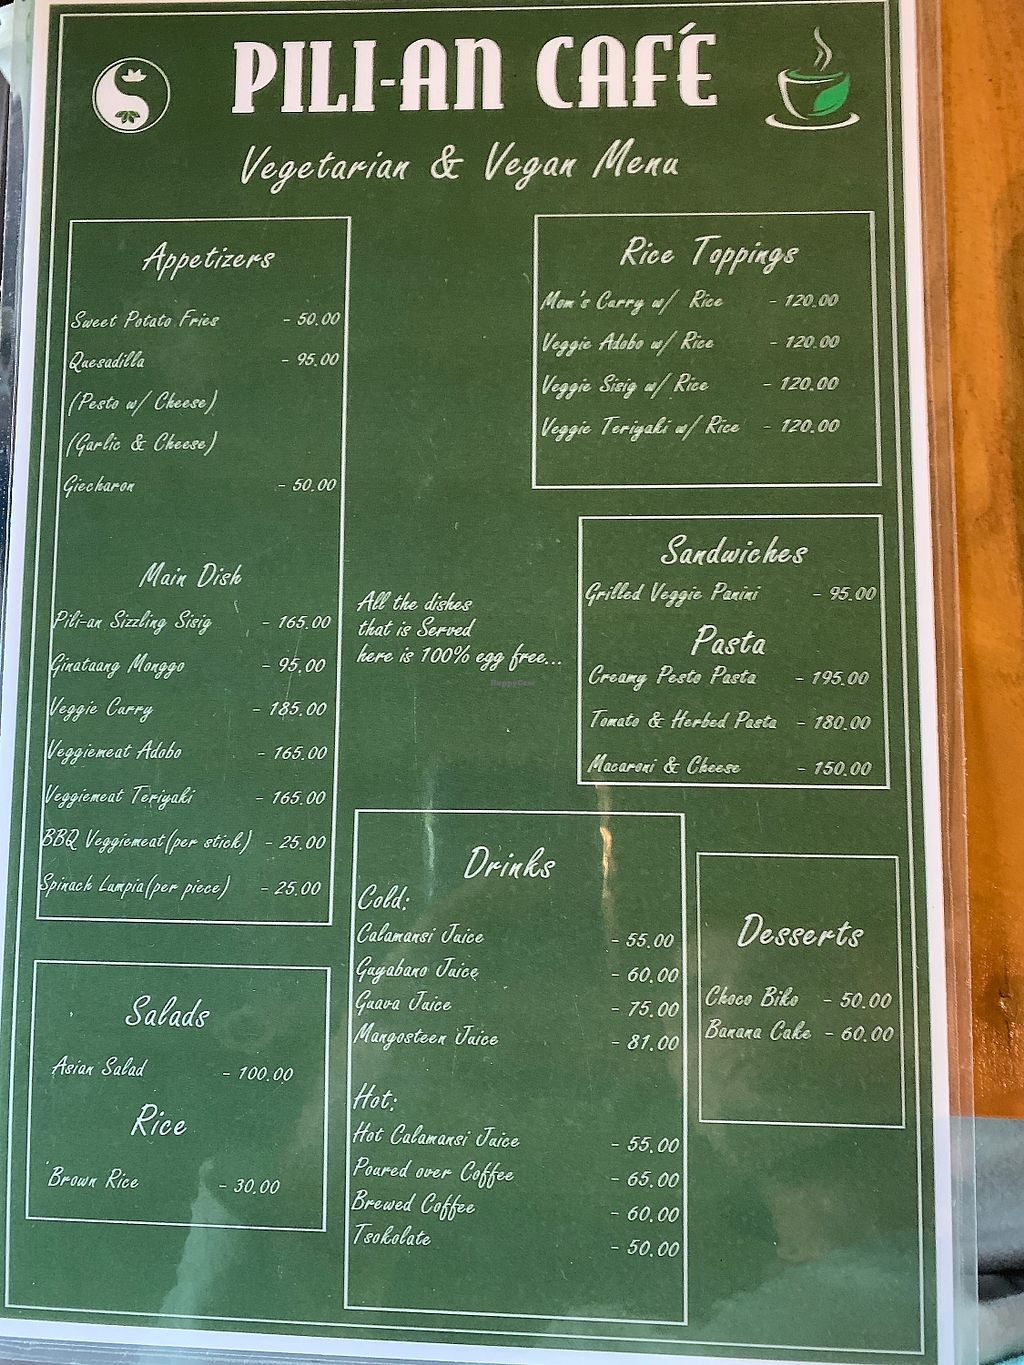 PILI-AN CAFÉ
Vegetarian & Vegan Menu
Appetizers
Sweet Potato Fries - 50.00
Quesadilla - 95.00
(Pesto w/ Cheese)
(Garlic & Cheese)
Giecharon - 50.00
Main Dish
Pili-an Sizzling Sisig - 165.00
Ginataang Monggo - 95.00
Veggie Curry - 185.00
Veggiemeat Adobo - 165.00
Veggiemeat Teriyaki - 165.00
BBQ Veggiemeat(per stick) - 25.00
Spinach Lumpia(per piece) - 25.00
Salads
Asian Salad - 100.00
Rice
Brown Rice - 30.00
All the dishes
that is Served
here is 100% egg free...
HappyCow
Rice Toppings
Mom's Curry w/ Rice - 120.00
Veggie Adobo w/ Rice - 120.00
Veggie Sisig w/ Rice - 120.00
Veggie Teriyaki w/ Rice - 120.00
Sandwiches
Grilled Veggie Panini - 95.00
Pasta
Creamy Pesto Pasta - 195.00
Tomato & Herbed Pasta - 180.00
Macaroni & Cheese - 150.00
Drinks
Cold:
Calamansi Juice - 55.00
Guyabano Juice - 60.00
Guava Juice - 75.00
Mangosteen Juice - 81.00
Hot:
Hot Calamansi Juice - 55.00
Poured over Coffee - 65.00
Brewed Coffee - 60.00
Tsokolate - 50.00
Desserts
Choco Biko - 50.00
Banana Cake - 60.00